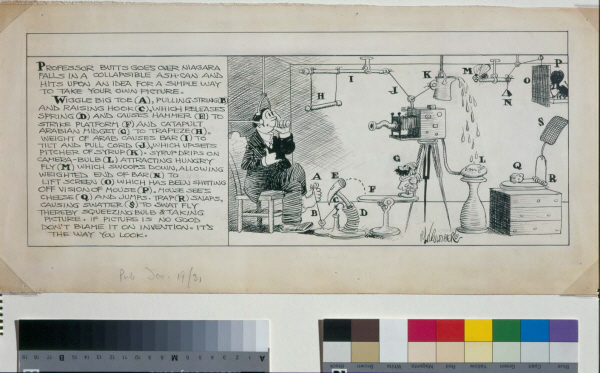 PROFESSOR BUTTS GOES OVER NIAGARA
FALLS IN A COLLAPSIBLE ASH-CAN AND
HITS UPON AN IDEA FOR A SIMPLE WAY
TO TAKE YOUR OWN PICTURE.
WIGGLE BIG TOE (A), PULLING STRING (B)
AND RAISING HOOK (C), WHICH RELEASES
SPRING (D) AND CAUSES HAMMER (E) TO
STRIKE PLATFORM (F) AND CATAPULT
ARABIAN MIDGET (G) TO TRAPEZE (H).
WEIGHT OF ARAB CAUSES BAR (I) TO
TILT AND PULL CORD (J), WHICH UPSETS
PITCHER OF SYRUP (K). SYRUP DRIPS ON
CAMERA-BULB (L) ATTRACTING HUNGRY
FLY (M) WHICH SWOOPS DOWN, ALLOWING
WEIGHTED END OF BAR (N) TO
LIFT SCREEN (O) WHICH HAS BEEN SHUTTING
OFF VISION OF MOUSE (P). MOUSE SEES
CHEESE (Q) AND JUMPS. TRAP (R) SNAPS,
CAUSING SWATTER (S) TO SWAT FLY
THEREBY SQUEEZING BULB & TAKING
PICTURE. IF PICTURE IS NO GOOD,
DON'T BLAME IT ON INVENTION. IT'S
THE WAY YOU LOOK.
I
H
J
K
M
N
O
P
S
G
L
Q
R
A
E
B
D
F
RUBE GOLDBERG
Pub Jan. 19/31